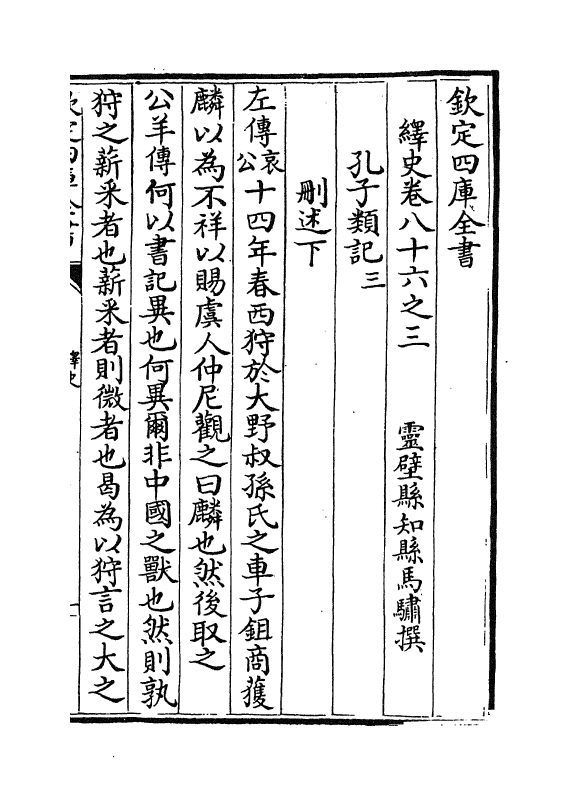 欽定四庫全書
繹史卷八十六之三　靈壁縣知縣馬驌撰
孔子類記三
刪述下
左傳哀公十四年春西狩於大野叔孫氏之車子鉏商獲
麟以為不祥以賜虞人仲尼觀之曰麟也然後取之
公羊傳何以書記異也何異爾非中國之獸也然則孰
狩之薪采者也薪采者則微者也曷為以狩言之大之
欽定四庫全書
繹史
一